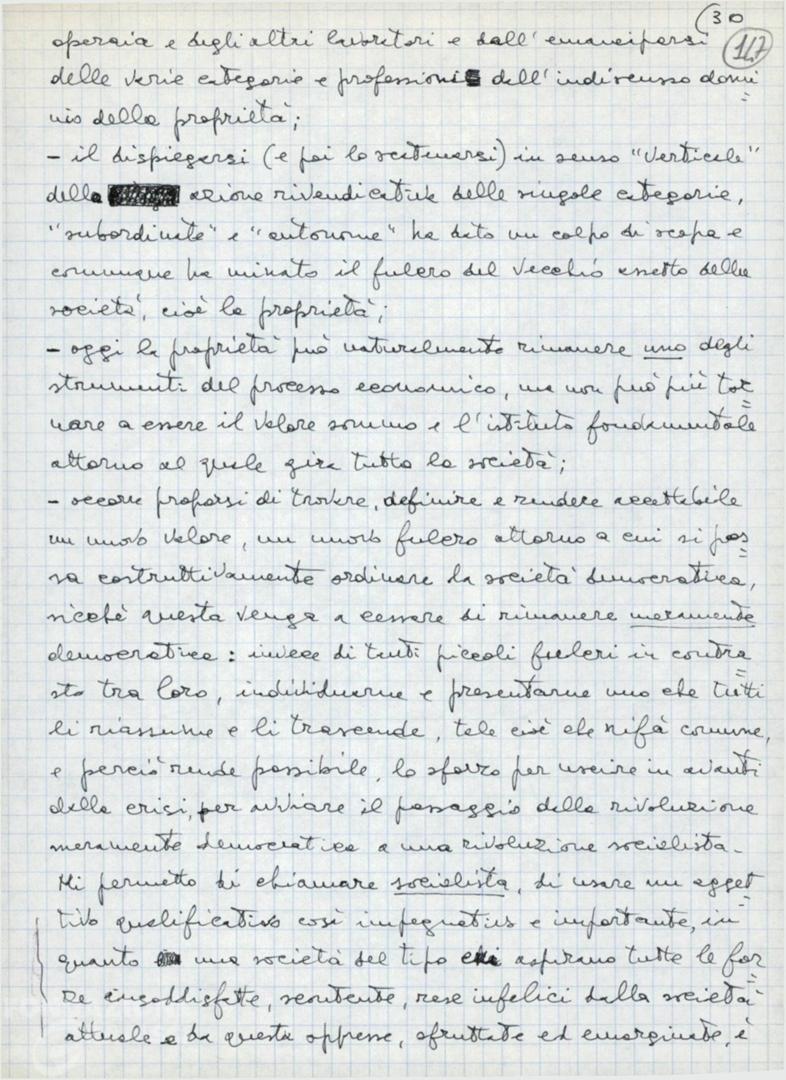 (30
147
operaia e degli altri lavoratori e dall'emanciparsi
delle varie categorie e professioni dall'indiscusso domi=
nio della proprietà;
- il dispiegarsi (e poi lo scatenarsi) in senso "verticale"
della azione rivendicativa delle singole categorie,
"subordinate" e "autonome" ha dato un colpo di scopa e
comunque ha minato il fulcro del vecchio assetto della
società, cioè la proprietà;
- oggi la proprietà può naturalmente rimanere uno degli
strumenti del processo economico, ma non può più tor=
nare a essere il valore sommo e l'istituto fondamentale
attorno al quale gira tutta la società;
- occorre proporsi di trovare, definire e rendere accettabile
un nuovo valore, un nuovo fulcro attorno a cui si pos=
sa costruttivamente ordinare la società democratica,
sicché questa venga a cessare di rimanere meramente
democratica: invece di tanti piccoli fulcri in contra=
sto tra loro, individuarne e presentarne uno che tutti
li riassume e li trascende, tale cioè che si fà comune,
e perciò rende possibile, lo sforzo per uscire in avanti
dalla crisi, per avviare il passaggio della rivoluzione
meramente democratica a una rivoluzione socialista.
Mi permetto di chiamare socialista, di usare un agget=
tivo qualificativo così impegnativo e importante, in
quanto una società del tipo cui aspirano tutte le for=
ze insoddisfatte, scontente, rese infelici dalla società
attuale e da questa oppresse, sfruttate ed emarginate, è